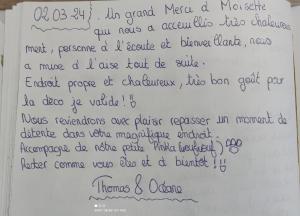 02.03.24} . Un grand Merci à Moisette
qui nous a accueillis très chaleureuse
ment, personne à l'écoute et bienveillante, nous
a muse à l'aise tout de suite.
Endroit propre et chaleureux, très bon goût pour
la déco je valide !
Nous reviendrons avec plaisir repasser un moment de
détente dans votre magnifique endroit.
Accompagné de notre petite Pinka (woufwouf)
Rester comme vous êtes et à bientôt !
Thomas & Océane